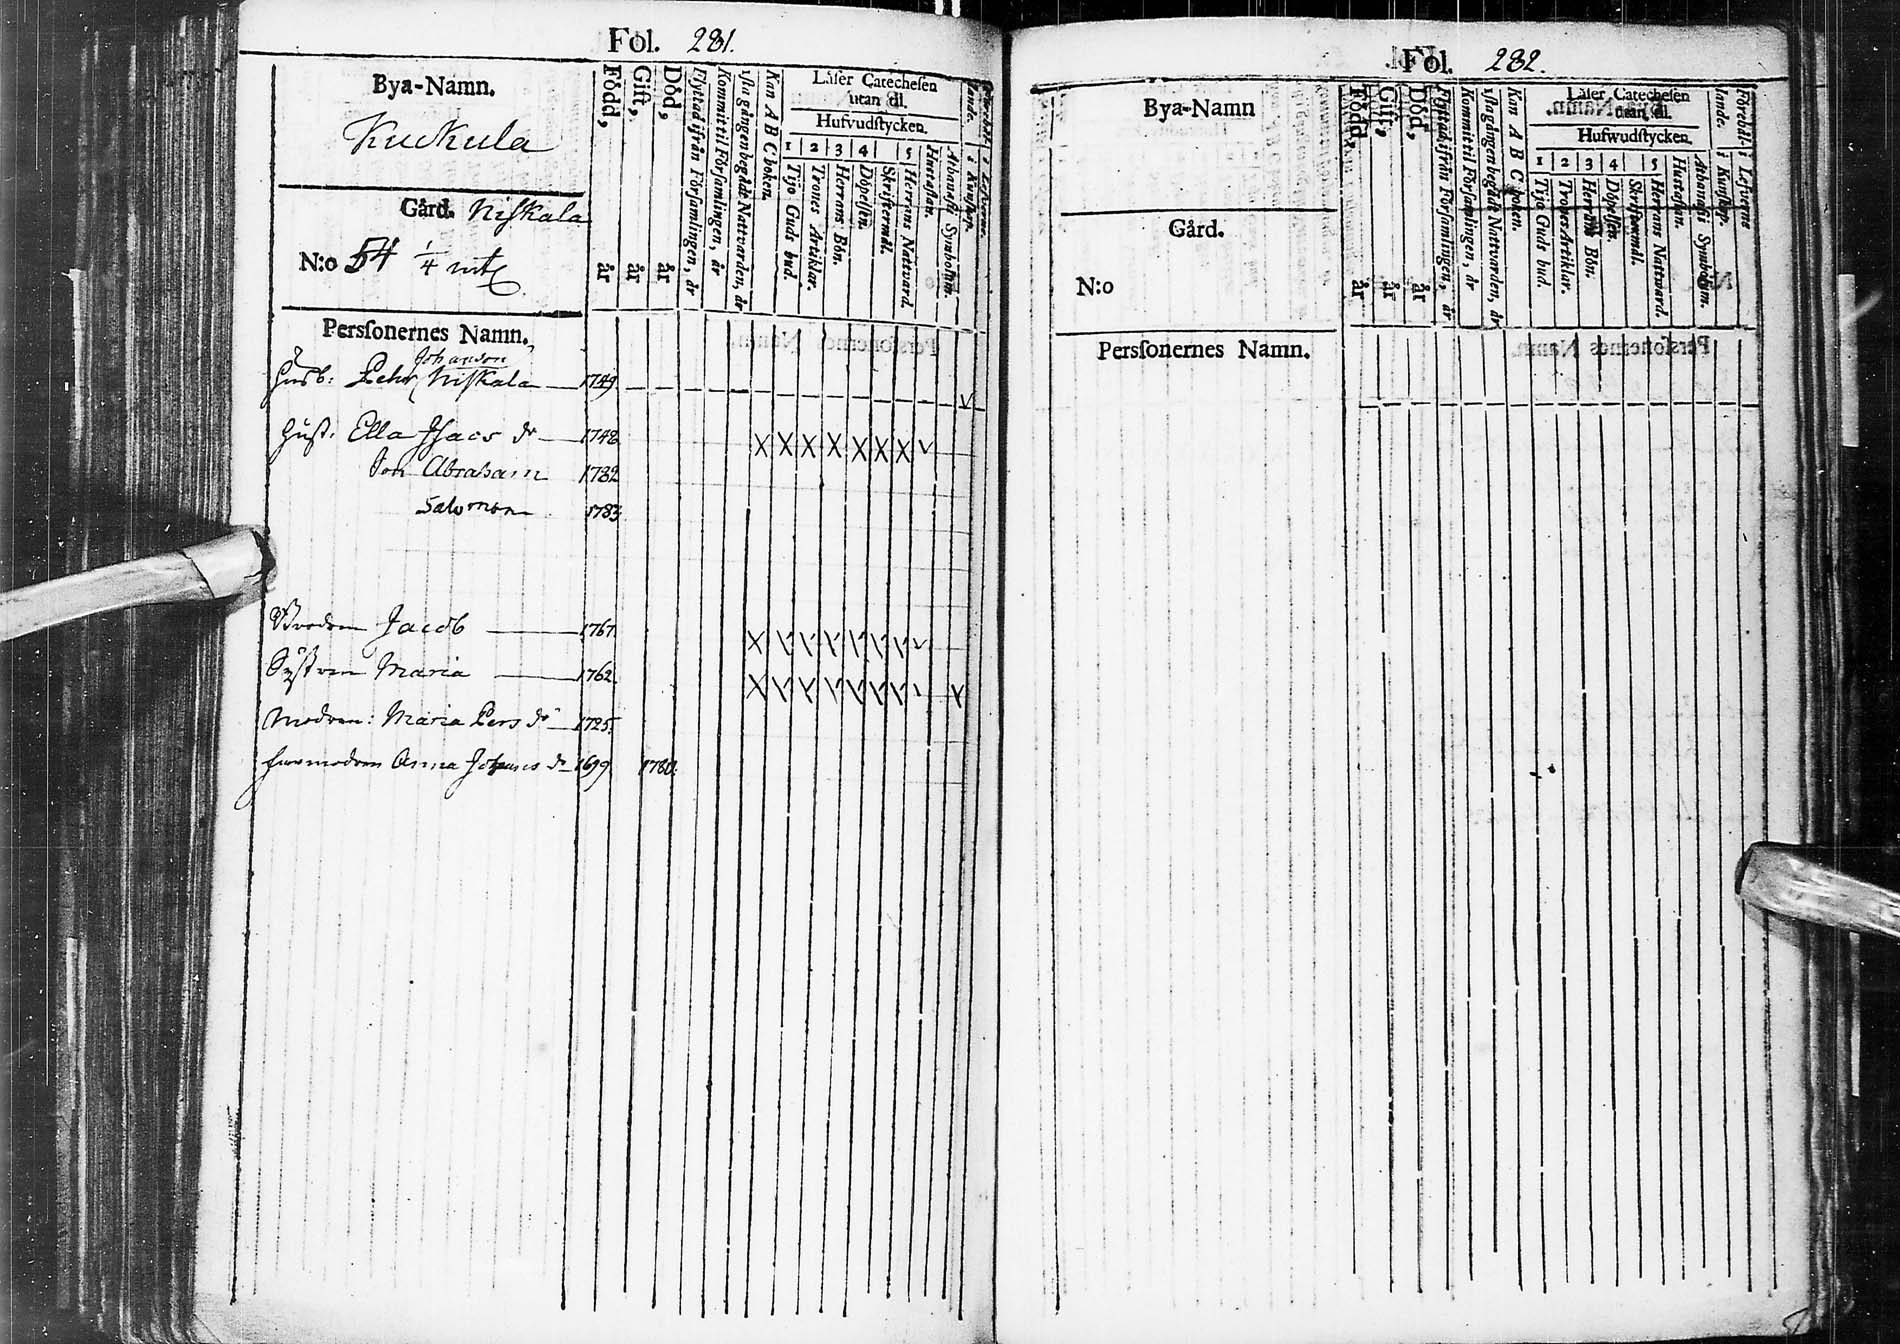 Fol. 281.
Bya-Namn.
Kuckula
Gård. Niskala
N:o 54 1/4 mtl
Persſonernes Namn.
Född, år
Gift, år
Död, år
Flyttad ifrån Församlingen, år
Kommit til Församlingen, år
1sta gången begådt Nattvarden, år
Kan A B C boken.
Läſer Catecheſen
utan til.
Hufvudſtycken.
1 2 3 4 5
Tijo Guds bud.
Trones Artiklar.
Herrans Bön.
Döpelſen.
Skriftermål.
Herrans Nattvard.
Huſtaflan.
Athanaſii Symbolum.
Johanson
Husb: Pehr Niskala 1749
Hust: Ella Isacs dr 1748
Son Abraham 1782
Salomon 1783
Brodren Jacob 1767
Systren Maria 1762
Modren: Maria Pers dr 1725
Farmodren Anna Johans dr 1699 1780
Fol. 282.
Bya-Namn
Gård.
N:o
Persſonernes Namn.
Född, år
Gift, år
Död, år
Flyttad ifrån Församlingen, år
Kommit til Församlingen, år
1sta gången begådt Nattvarden, år
Kan A B C boken.
Läſer Catecheſen
utan til.
Hufwudſtycken.
1 2 3 4 5
Tijo Guds bud.
Trones Artiklar.
Herrans Bön.
Döpelſen.
Skriftermål.
Herrans Nattward.
Huſtaflan.
Athanaſii Symbolum.
Förehållande.
i Kunſkap.
i Lefwerne